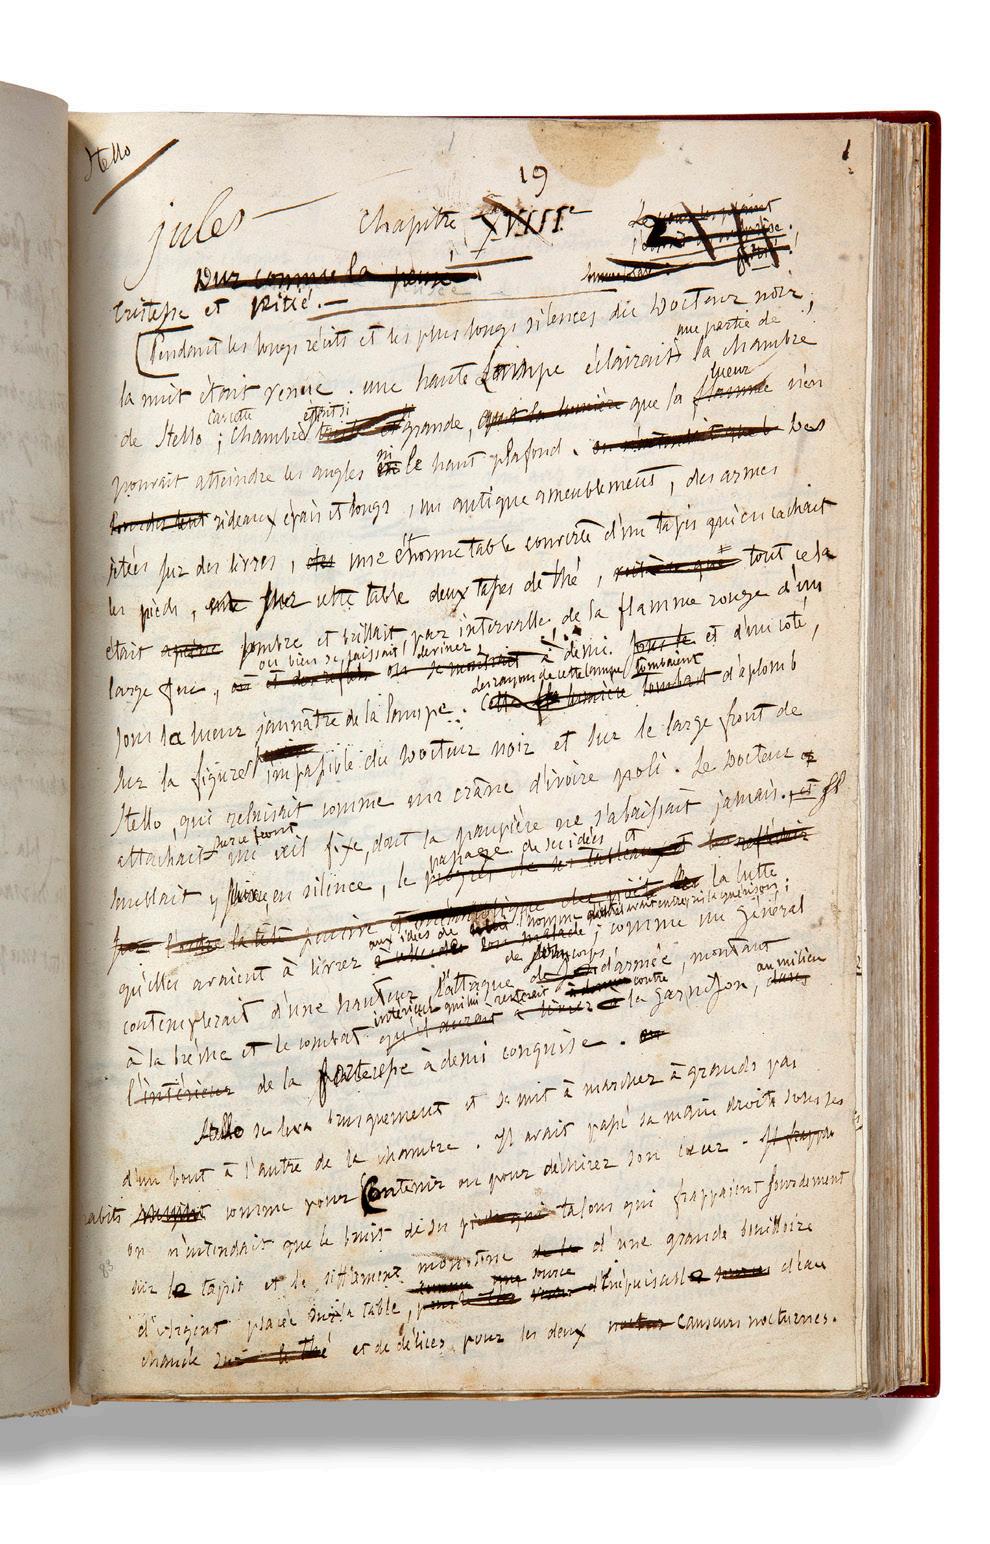 Stello
1
19
jules
Chapitre XVIIIe
2
Dur comme la pensée
Tristesse et Pitié. —
Pendant les longs récits et les plus longs silences du Docteur noir,
une partie de
la nuit était venue. une haute Lampe éclairait la chambre
lueur
de Stello ; Chambre grande, que la flamme n'en
pouvait atteindre les angles ni le haut plafond. Des
rideaux épais et longs, un antique ameublement, des armes
jetées sur des livres, des une énorme table couverte d'un tapis qui en cachait
les pieds, et sur cette table deux tasses de thé, tout cela
était sombre et brillait par intervalle, de la flamme rouge d'un
ou bien se laissait deviner
large feu, à demi. et d'un côté,
les rayons de cette lampe tombaient
sous la lueur jaunâtre de la lampe. Cette lumière tombait d'aplomb
sur la figure impassible du Docteur noir et sur le large front de
Stello, qui reluisait comme un crâne d'ivoire poli. Le Docteur
sur ce front
attachait un œil fixe, dont la paupière ne s'abaissait jamais. et Il
passage de ses idées et
semblait y suivre en silence, le
la lutte
qu'elles auraient à livrer aux idées de l'homme dont il avait entrepris la guérison ; comme un général
contemplerait d'une hauteur l'attaque de son corps d'armée, montant
intérieur qui lui resterait à livrer contre
à la brèche et le combat qu'il aurait à livrer la garnison, au milieu
l'intérieur de la forteresse à demi conquise.
Stello se leva brusquement et se mit à marcher à grands pas
d'un bout à l'autre de la chambre. Il avait passé sa main droite sous ses
habits comme pour Contenir ou pour déchirer son cœur.
on n'entendait que le bruit de ses talons qui frappaient sourdement
sur le tapis et le sifflement monotone d'une grande bouilloire
source
d'argent placée sur la table, inépuisable d'eau
chaude et de délices pour les deux causeurs nocturnes.
83